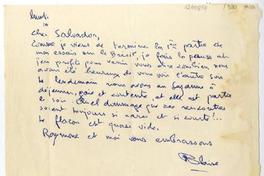 lundi
Cher Salvador,
Comme je viens de terminer la 1ère partie de
mes essais sur le Brésil je fais la pause et
j'en profite pour venir vous dire combien nous
avons été heureux de vous voir l'autre soir
Le lendemain nous avons eu Suzanne à
déjeuner, gaie et contente et elle est partie
le soir. Quel dommage que ces rencontres
soient toujours si rares et si courtes!...
Le flacon est quasi vide.
Raymone et moi vous embrassons
Blaise